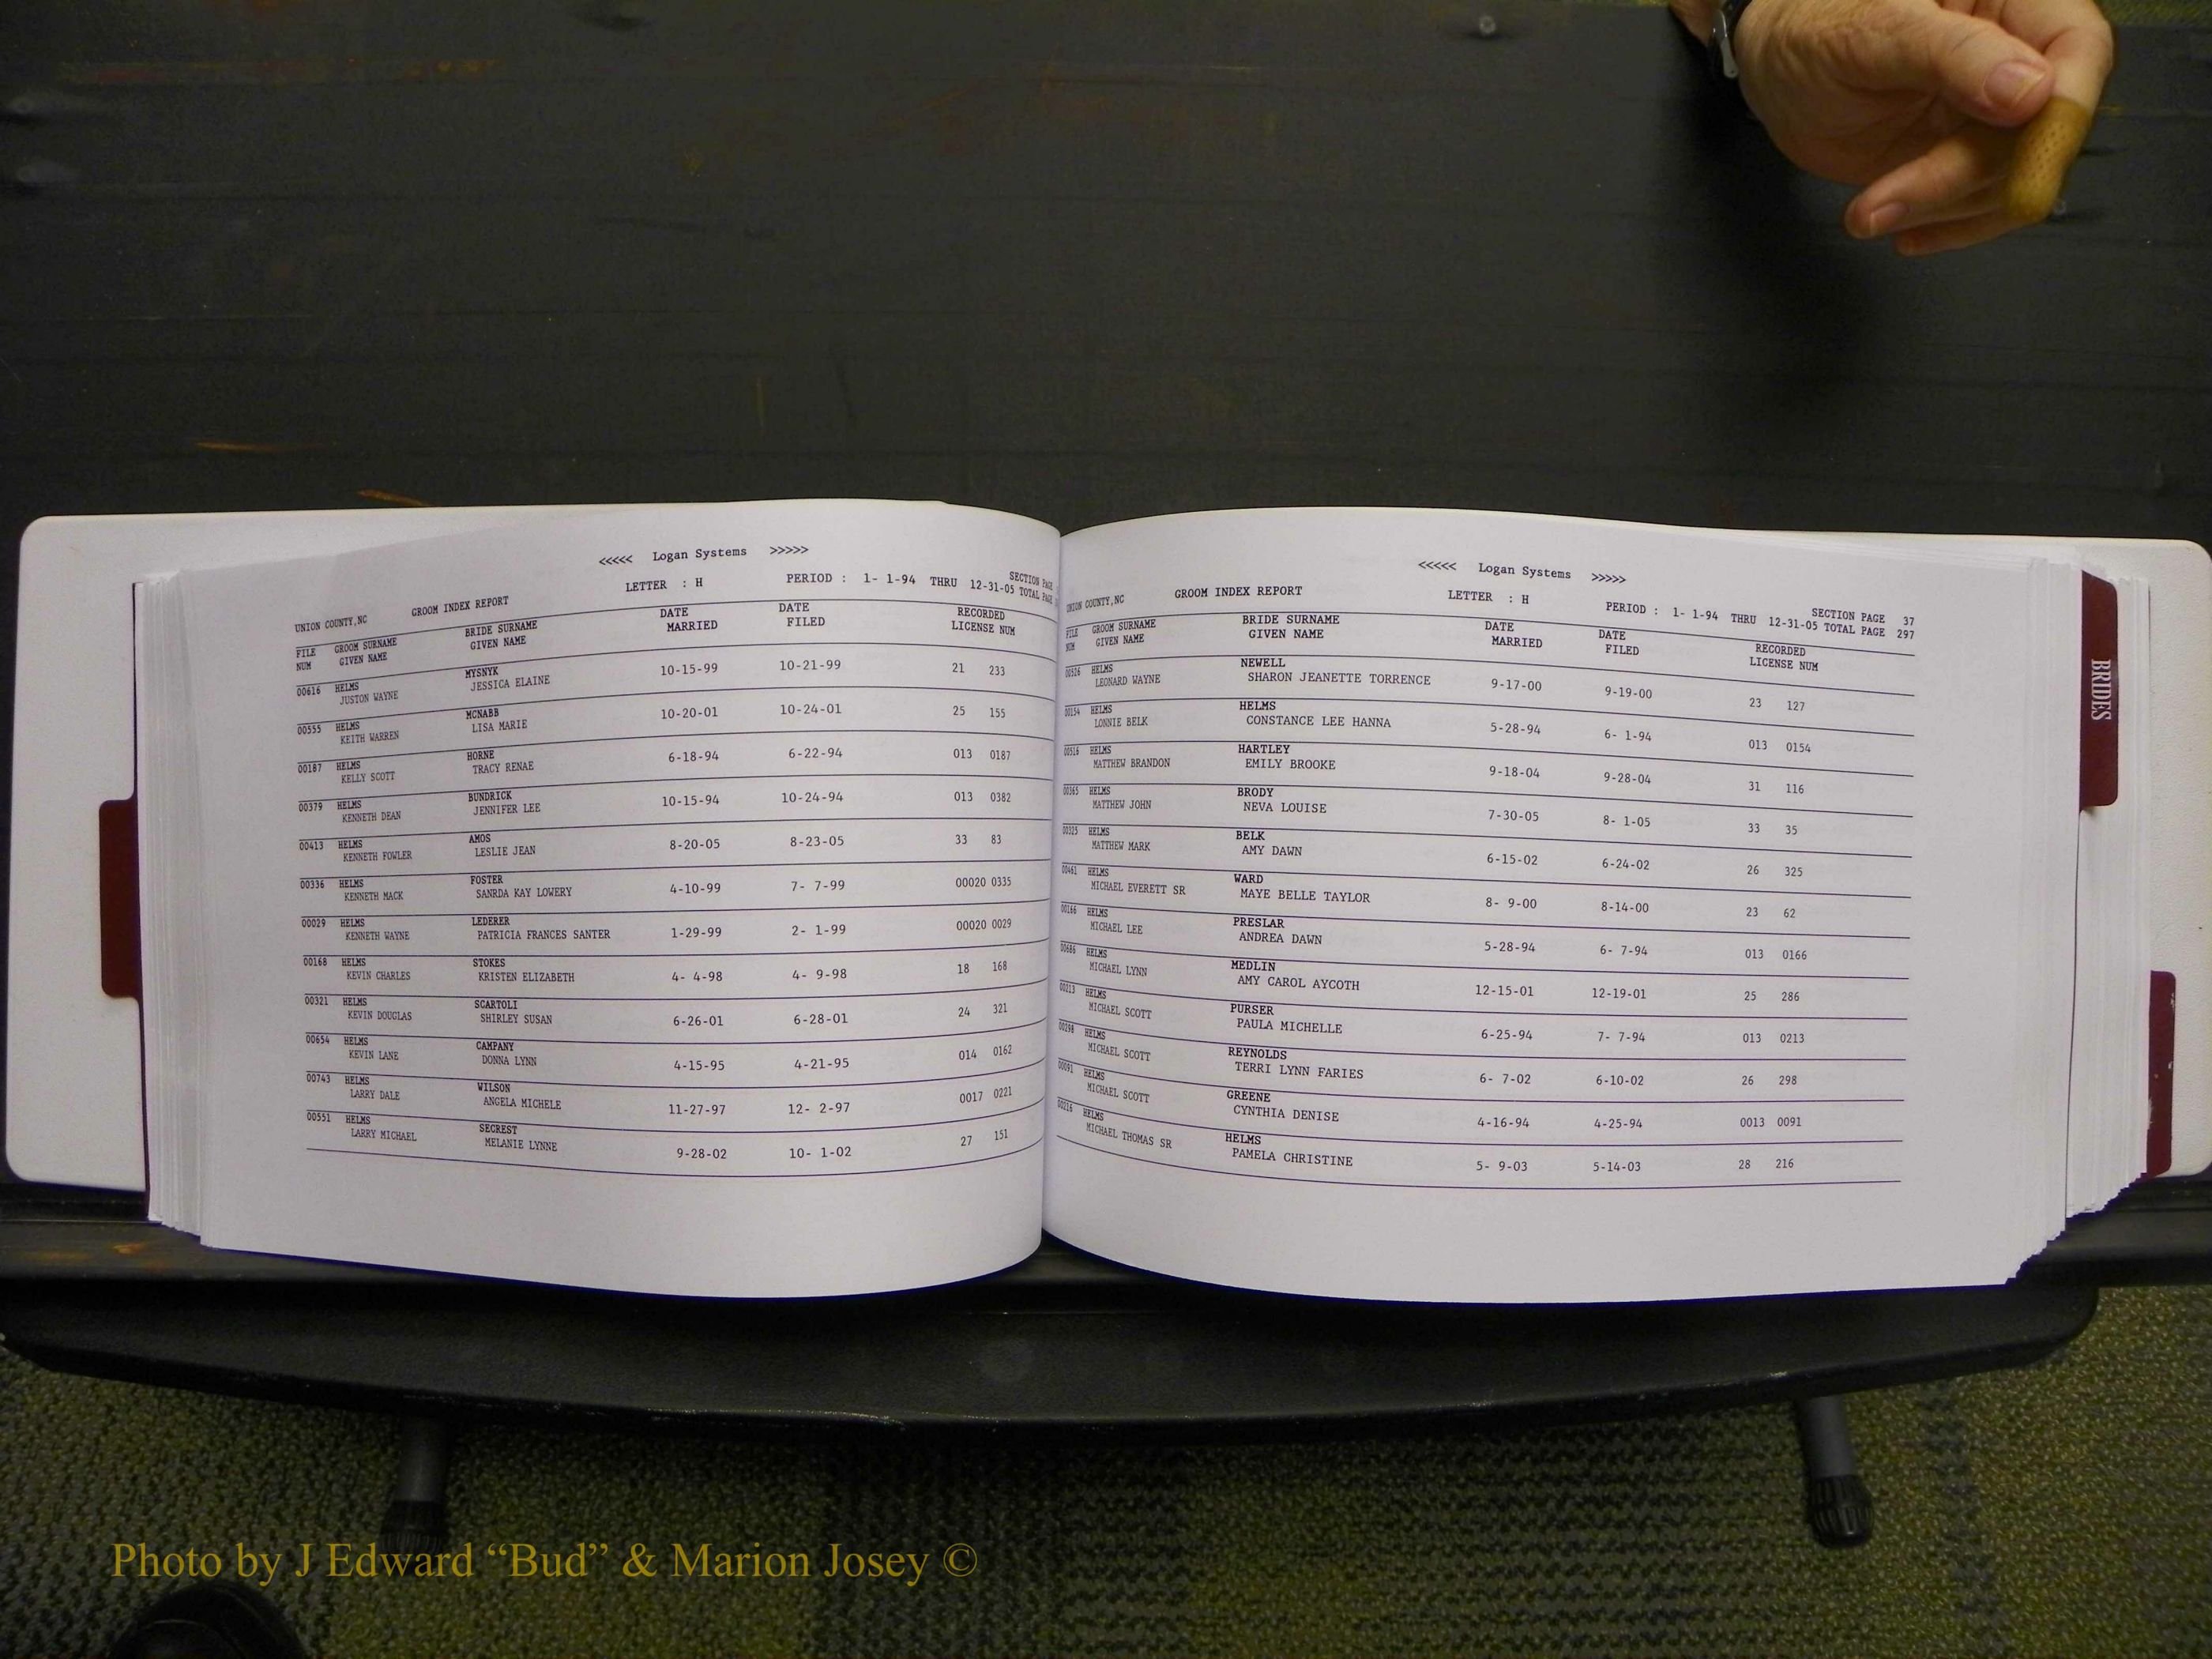 <<<<< Logan Systems >>>>>
UNION COUNTY,NC GROOM INDEX REPORT LETTER : H PERIOD : 1- 1-94 THRU 12-31-05 SECTION PAGE
TOTAL PAGE
FILE GROOM SURNAME BRIDE SURNAME DATE DATE RECORDED
NUM GIVEN NAME GIVEN NAME MARRIED FILED LICENSE NUM
00616 HELMS MYSNYK 10-15-99 10-21-99 21 233
JUSTON WAYNE JESSICA ELAINE
00555 HELMS MCNABB 10-20-01 10-24-01 25 155
KEITH WARREN LISA MARIE
00187 HELMS HORNE 6-18-94 6-22-94 013 0187
KELLY SCOTT TRACY RENAE
00379 HELMS BUNDRICK 10-15-94 10-24-94 013 0382
KENNETH DEAN JENNIFER LEE
00413 HELMS AMOS 8-20-05 8-23-05 33 83
KENNETH FOWLER LESLIE JEAN
00336 HELMS FOSTER 4-10-99 7- 7-99 00020 0335
KENNETH MACK SANRDA KAY LOWERY
00029 HELMS LEDERER 1-29-99 2- 1-99 00020 0029
KENNETH WAYNE PATRICIA FRANCES SANTER
00168 HELMS STOKES 4- 4-98 4- 9-98 18 168
KEVIN CHARLES KRISTEN ELIZABETH
00321 HELMS SCARTOLI 6-26-01 6-28-01 24 321
KEVIN DOUGLAS SHIRLEY SUSAN
00654 HELMS CAMPANY 4-15-95 4-21-95 014 0162
KEVIN LANE DONNA LYNN
00743 HELMS WILSON 11-27-97 12- 2-97 0017 0221
LARRY DALE ANGELA MICHELE
00551 HELMS SECREST 9-28-02 10- 1-02 27 151
LARRY MICHAEL MELANIE LYNNE
<<<<< Logan Systems >>>>>
UNION COUNTY,NC GROOM INDEX REPORT LETTER : H PERIOD : 1- 1-94 THRU 12-31-05 SECTION PAGE 37
TOTAL PAGE 297
FILE GROOM SURNAME BRIDE SURNAME DATE DATE RECORDED
NUM GIVEN NAME GIVEN NAME MARRIED FILED LICENSE NUM
00526 HELMS NEWELL 9-17-00 9-19-00 23 127
LEONARD WAYNE SHARON JEANETTE TORRENCE
00154 HELMS HELMS 5-28-94 6- 1-94 013 0154
LONNIE BELK CONSTANCE LEE HANNA
00516 HELMS HARTLEY 9-18-04 9-28-04 31 116
MATTHEW BRANDON EMILY BROOKE
00365 HELMS BRODY 7-30-05 8- 1-05 33 35
MATTHEW JOHN NEVA LOUISE
00325 HELMS BELK 6-15-02 6-24-02 26 325
MATTHEW MARK AMY DAWN
00461 HELMS WARD 8- 9-00 8-14-00 23 62
MICHAEL EVERETT SR MAYE BELLE TAYLOR
00166 HELMS PRESLAR 5-28-94 6- 7-94 013 0166
MICHAEL LEE ANDREA DAWN
00686 HELMS MEDLIN 12-15-01 12-19-01 25 286
MICHAEL LYNN AMY CAROL AYCOTH
00213 HELMS PURSER 6-25-94 7- 7-94 013 0213
MICHAEL SCOTT PAULA MICHELLE
00298 HELMS REYNOLDS 6- 7-02 6-10-02 26 298
MICHAEL SCOTT TERRI LYNN FARIES
00091 HELMS GREENE 4-16-94 4-25-94 0013 0091
MICHAEL SCOTT CYNTHIA DENISE
00216 HELMS HELMS 5- 9-03 5-14-03 28 216
MICHAEL THOMAS SR PAMELA CHRISTINE
BRIDES
Photo by J Edward “Bud” & Marion Josey ©